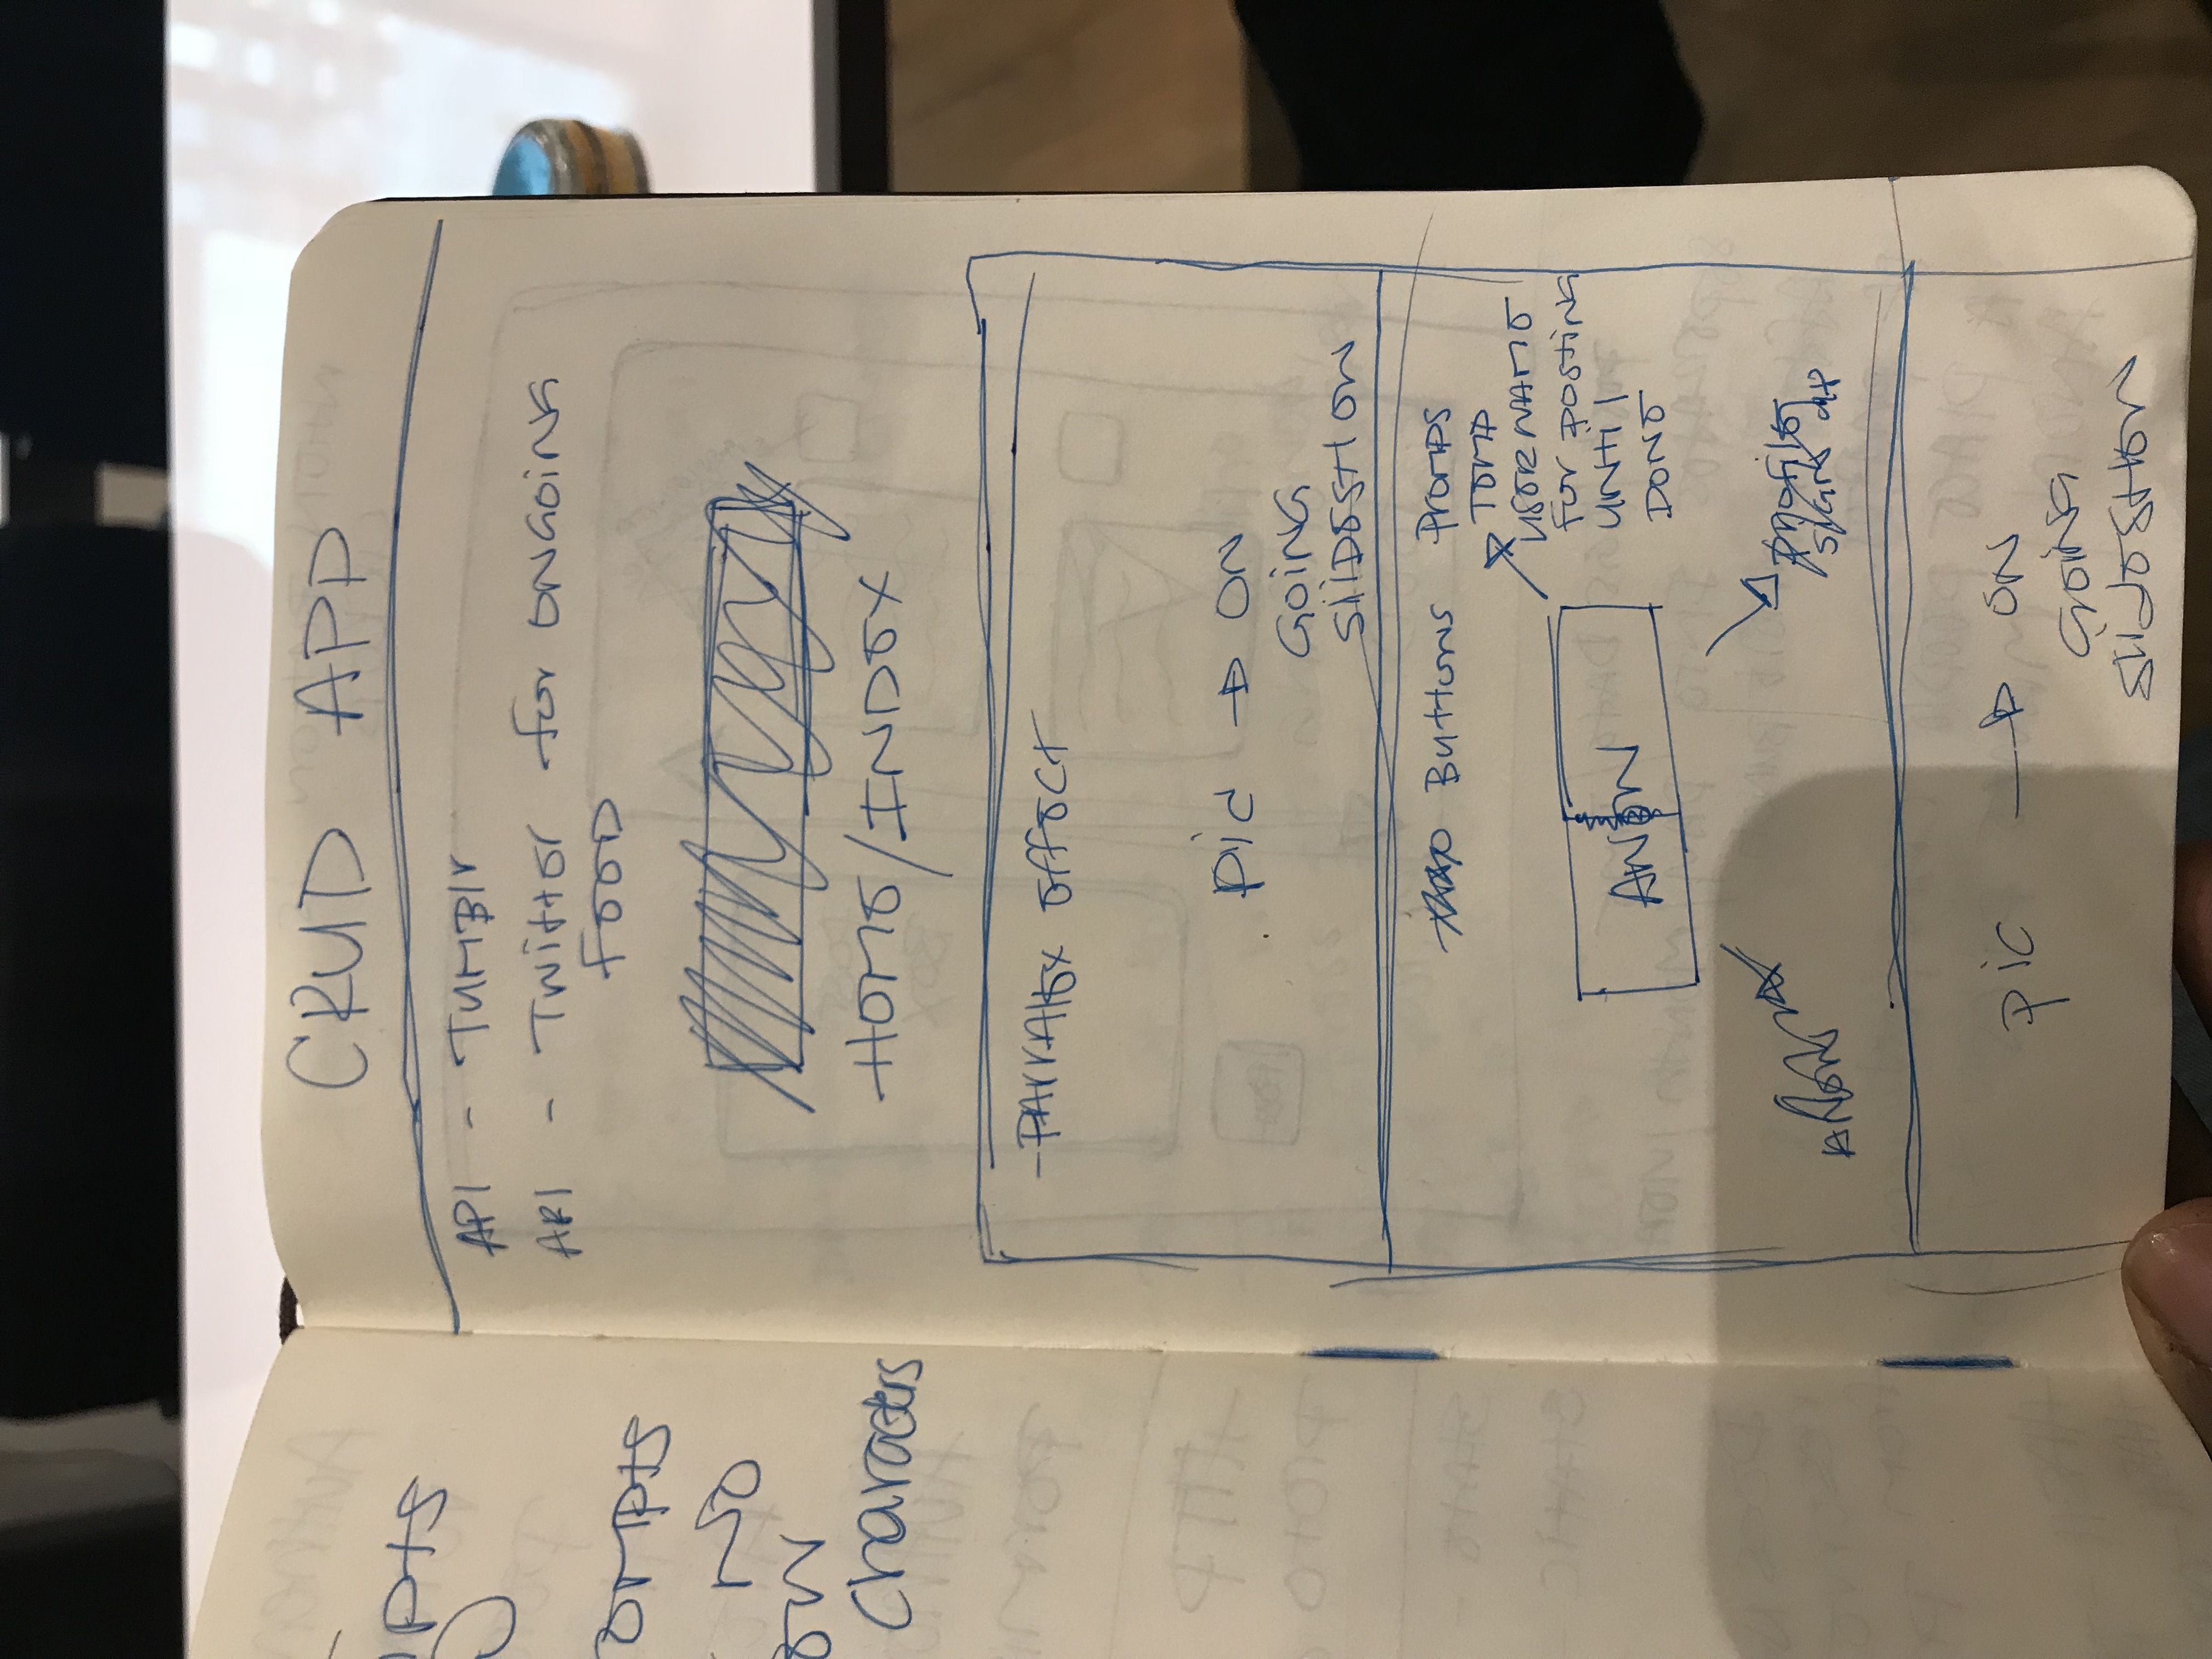 ipts
ompts
NO
ow
characters
CRUD APP
API - TUMBlr
API - Twitter for ONGOING
FEED
HOME/INDEX
- PArrAllex effect
pic → ON
GOING
SliDESHOW
Buttons
Promps
TEMP
USERNAME
for posting
UNtil
DONE
ANON
ANON
profile
sign up
pic → ON
GOING
SlidESHOW